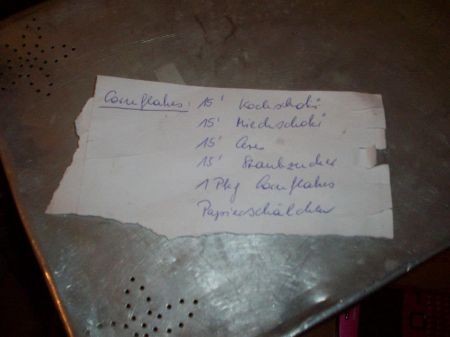 Cornflakes: 15' Kochschoki
15' Milchschoki
15' Ceres
15' Staubzucker
1 Pkg Cornflakes
Papierschälchen